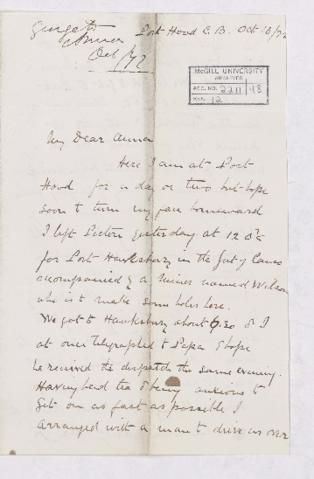 George to
Anna
Oct /72
Port Hood C.B. Oct 13/72
McGILL UNIVERSITY
ARCHIVES
ACC. NO. 2211 / 48
REF. 12
My Dear Anna
Here I am at Port
Hood for a day or two but hope
soon to turn my face homeward
I left Pictou yesterday at 12 Oc
for Port Hawksbury in the Gut of Canso
accompanied by a Miner named Wilson
who is to make some holes here.
We got to Hawksbury about 6.30 & I
at once telegraphed to Papa I hope
he received the dispatch the same evening.
Having had tea & being anxious to
get on as fast as possible I
arranged with a man to drive us over